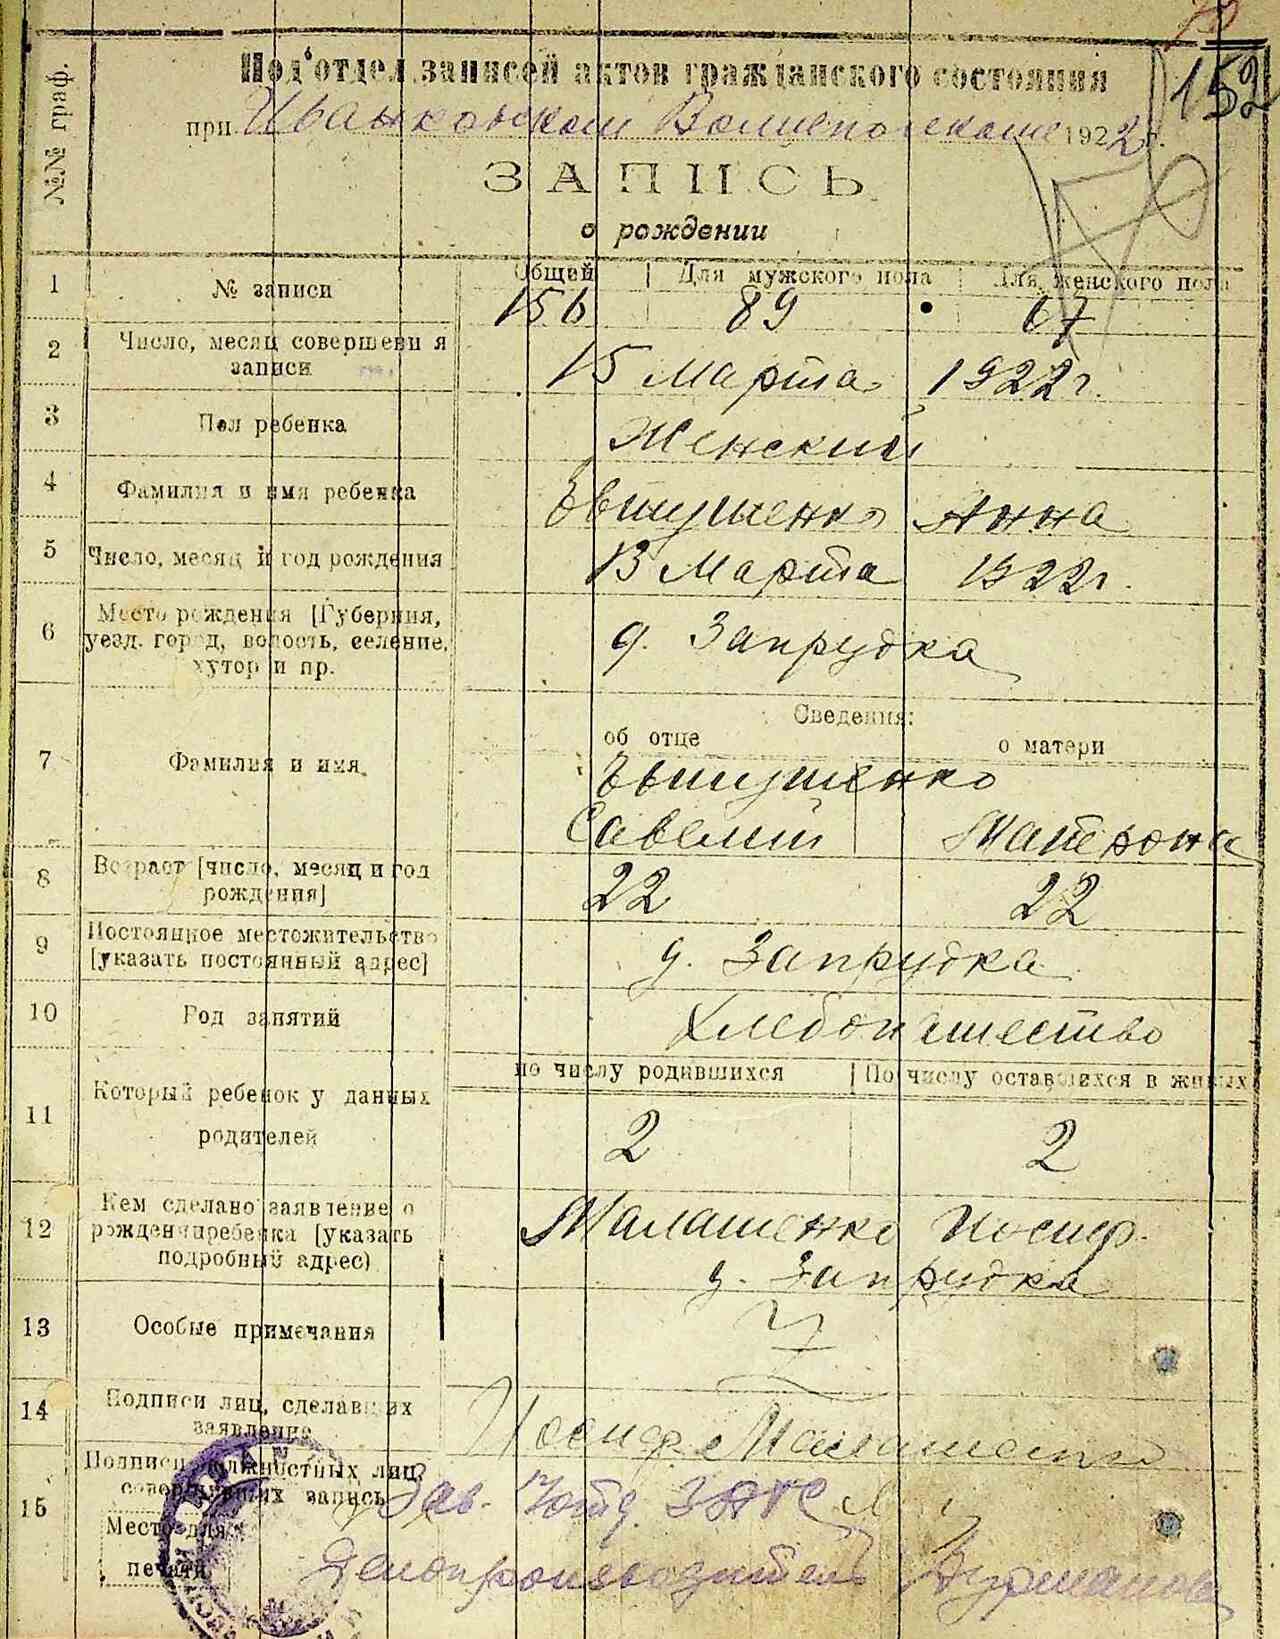 152
Под'отдел записей актов гражданского состояния
при Иваньковском Волисполкоме 1922 г.
ЗАПИСЬ
о рождении
№№ граф.
1 № записи
Общей Для мужского пола Для женского пола
156 89 67
2 Число, месяц совершения записи
15 Марта 1922 г.
3 Пол ребенка Женский
4 Фамилия и имя ребенка Евтушенко Анна
5 Число, месяц и год рождения 13 Марта 1922 г.
6 Место рождения [Губерния,
уезд. город, волость, селение,
хутор и пр.
д. Запрудка
Сведения:
об отце о матери
7 Фамилия и имя Евтушенко
Савелий Матрона
8 Возраст [число, месяц и год
рождения]
22 22
9 Постоянное местожительство
[указать постоянный адрес]
д. Запрудка
10 Род занятий Хлебопашество
по числу родившихся По числу оставшихся в живых
11 Который ребенок у данных
родителей
2 2
12 Кем сделано заявление о
рождении ребенка [указать
подробный адрес)
Малашенко Иосиф
д. Запрудка
13 Особые примечания
14 Подписи лиц, сделавших
заявление
Иосиф Малашенко
15 Подписи должностных лиц,
совершивших запись
Зав. П/отд. ЗАГС
Место для
печати
Делопроизводитель